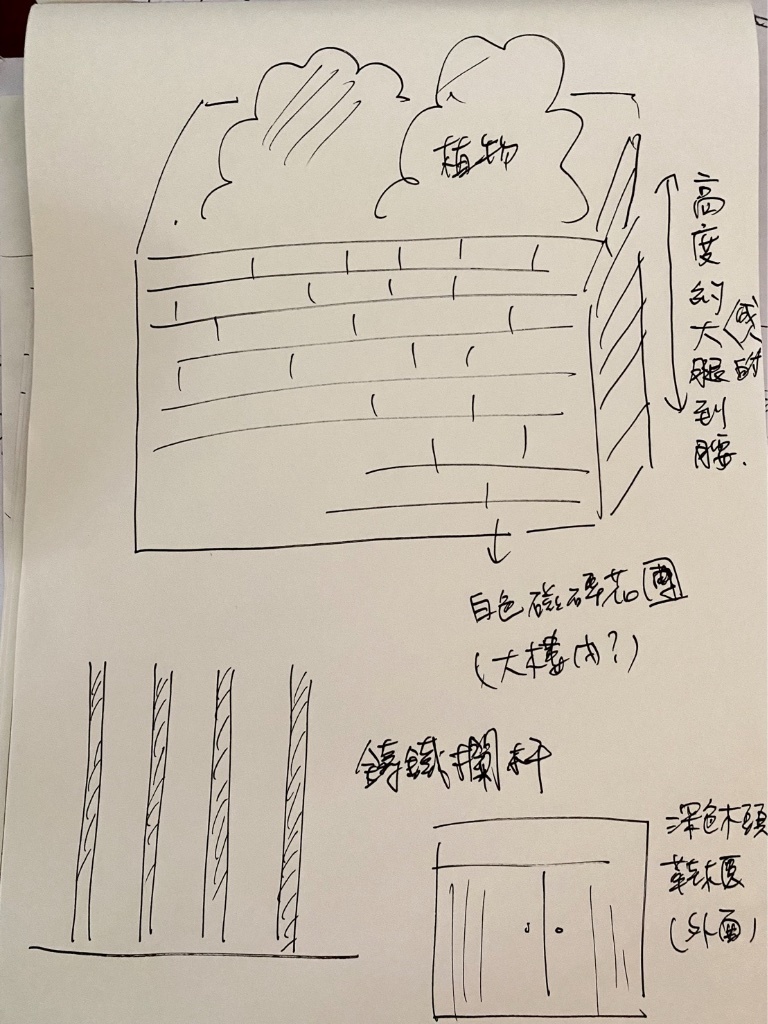 植物
高度約大腿到腰.
白色磁磚花圃
(大樓內?)
鑄鐵欄杆
深色木頭
鞋櫃
(外面)